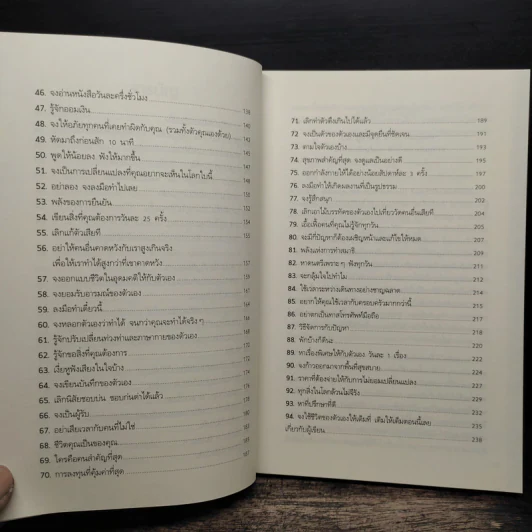 46. จงอ่านหนังสือวันละครึ่งชั่วโมง
47. รู้จักออมเงิน 139
48. จงให้อภัยทุกคนที่เคยทำผิดกับคุณ (รวมทั้งตัวคุณเองด้วย) 140
49. หัดมาถึงก่อนสัก 10 นาที 142
50. พูดให้น้อยลง ฟังให้มากขึ้น
51. จงเป็นการเปลี่ยนแปลงที่คุณอยากจะเห็นในโลกใบนี้
52. อย่าลอง จงลงมือทำไปเลย
53. พลังของการยืนยัน
54. เขียนสิ่งที่คุณต้องการวันละ 25 ครั้ง
55. เลิกแก้ตัวเสียที
56. อย่าให้คนอื่นคาดหวังกับเราสูงเกินจริง
เพื่อให้เราทำได้สูงกว่าที่เขาคาดหวัง
57. จงออกแบบชีวิตในอุดมคติให้กับตัวเอง
58. จงยอมรับอารมณ์ของตัวเอง
59. ลงมือทำเดี๋ยวนี้
60. จงหลอกตัวเองว่าทำได้ จนกว่าคุณจะทำได้จริงๆ
61. รู้จักปรับเปลี่ยนท่วงท่าและภาษากายของตัวเอง
62. รู้จักขอสิ่งที่คุณต้องการ
63. เงี่ยหูฟังเสียงในใจบ้าง
64. จงเขียนบันทึกของตัวเอง
65. เลิกนิสัยชอบบ่น ชอบก่นด่าได้แล้ว
66. จงเป็นผู้รับ
67. อย่าเสียเวลากับคนที่ไม่ใช่
68. ชีวิตคุณเป็นของคุณ
69. ใครคือคนสำคัญที่สุด
70. การลงทุนที่คุ้มค่าที่สุด 187
71. เลิกทำตัวตึงเกินไปได้แล้ว 189
72. จงเป็นตัวของตัวเองและมีจุดยืนที่ชัดเจน 191
73. ตามใจตัวเองบ้าง 193
74. สุขภาพสำคัญที่สุด จงดูแลเป็นอย่างดี 195
75. ออกกำลังกายให้ได้อย่างน้อยสัปดาห์ละ 3 ครั้ง 197
76. ลงมือทำให้เกิดผลงานที่เป็นรูปธรรม 200
77. จงรู้สึกสนุก 202
78. เลิกเอาไม้บรรทัดของตัวเองไปเที่ยววัดคนอื่นเสียที 204
79. เอื้อเฟื้อคนที่คุณไม่รู้จักทุกวัน 205
80. จะมีกี่ปัญหาก็ต้องเผชิญหน้าและแก้ไขให้หมด 207
81. พลังแห่งการทำสมาธิ 209
82. หาดนตรีเพราะๆ ฟังทุกวัน 211
83. จะกลุ้มใจไปทำไม 213
84. ใช้เวลาระหว่างเดินทางอย่างชาญฉลาด
85. อยากให้คุณใช้เวลากับครอบครัวมากกว่านี้
86. อย่าตกเป็นทาสโทรศัพท์มือถือ
87. วิธีจัดการกับปัญหา
88. พักบ้างก็ดีนะ
89. หาเรื่องพิเศษให้กับตัวเอง วันละ 1 เรื่อง
90. จงก้าวออกมาจากพื้นที่สุขสบาย
91. ราคาที่ต้องจ่ายให้กับการไม่ยอมเปลี่ยนแปลง
92. ทุกสิ่งในโลกล้วนไม่จีรัง
93. หาที่ปรึกษาที่ดี
94. จงใช้ชีวิตของตัวเองให้เต็มที่ เต็มให้เต็มตอนนี้เลย
เกี่ยวกับผู้เขียน 238